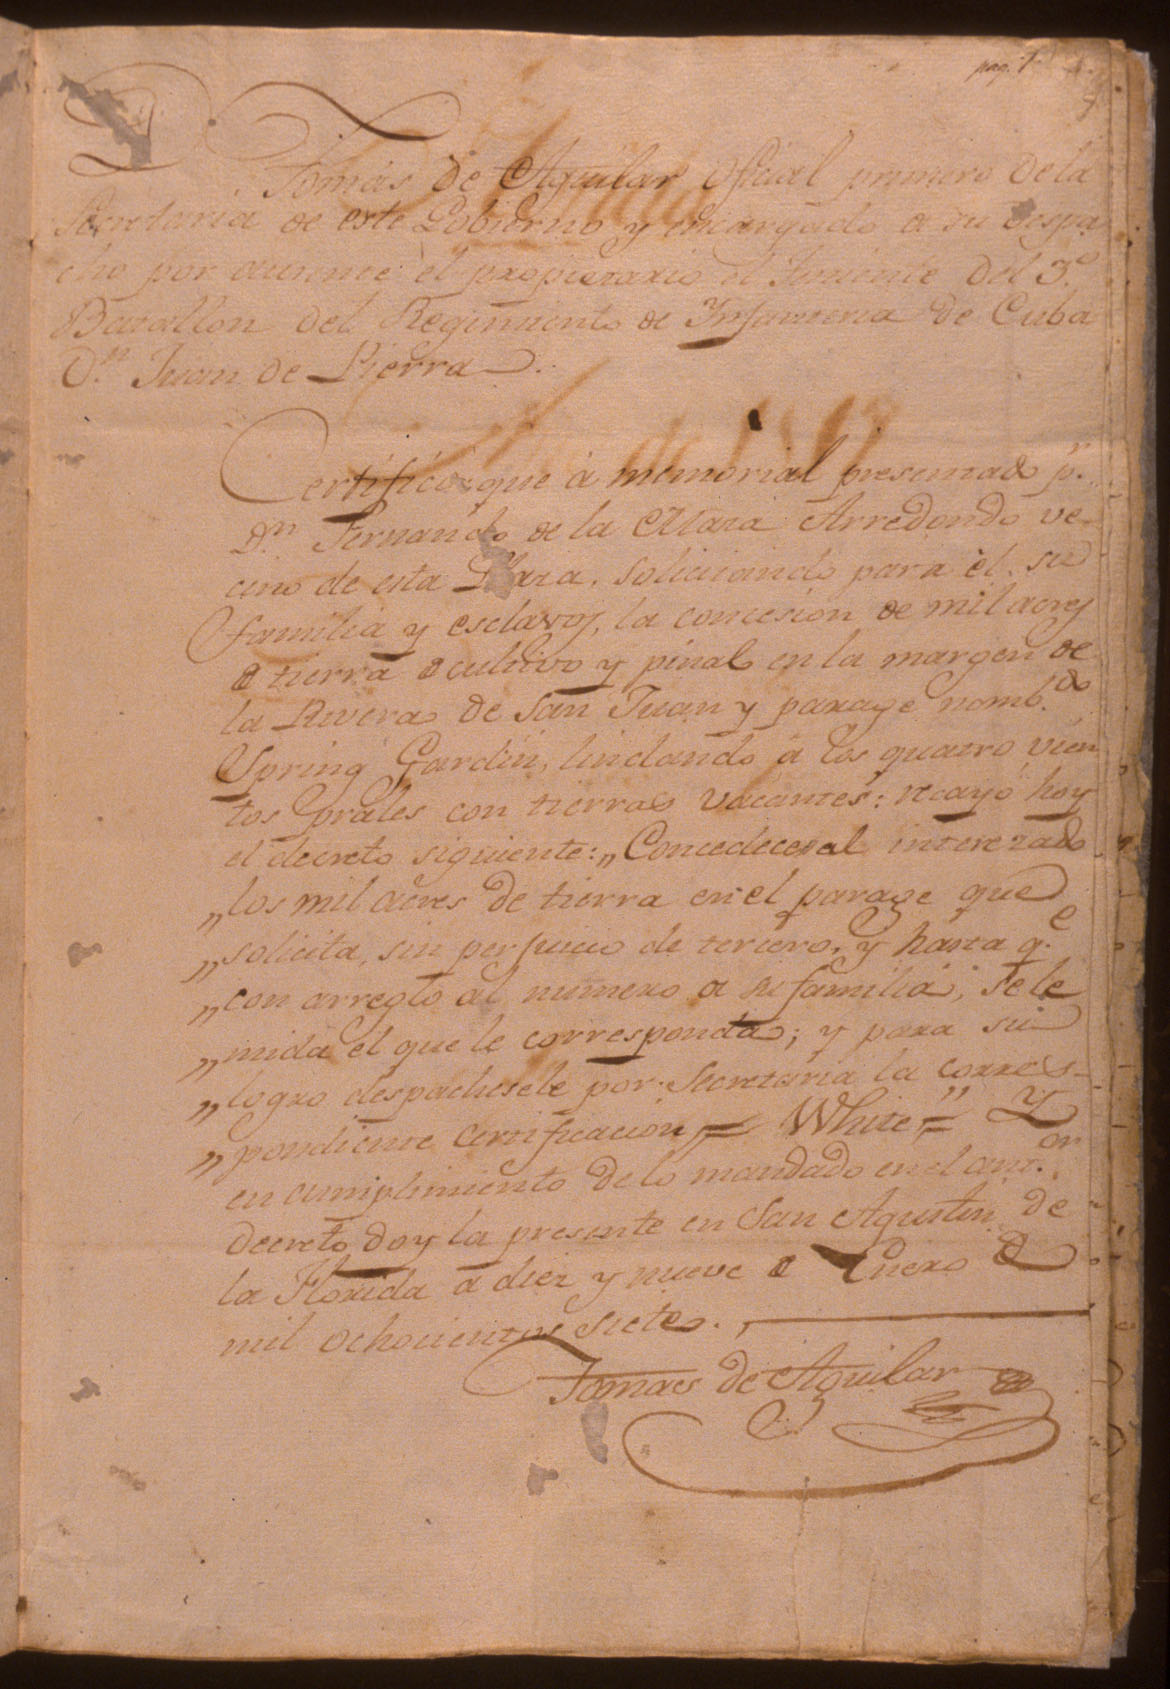 pag. 1
Dn. Tomás de Aguilar Oficial primero de la
Secretaria de este Gobierno y encargado a su despa
cho por ausencia èl propietario el Teniente del 3.º
Batallon del Regimiento de Infanteria de Cuba
D.n Juan de Pierra.
Certifico: que à memorial presentado p.r
D.n Fernando de la Maza Arredondo ve-
cino de esta Plaza, solicitando para èl, su
familia y esclavos, la concesion de mil acres
de tierra de cultivo y pinal en la margen de
la Rivera de San Juan y parage nomb.do
Spring Gardin, lindando à los quatro vien
tos prales con tierras vacantes: recayó hoy
el decreto siguiente: „Concedecese al interezado
„los mil acres de tierra en el parage que
„solicita, sin perjuicio de tercero, y hasta q.e
„con arreglo al numero de su familia, se le
„mida el que le corresponda; y para su
„logro despachesele por Secretaria la corres-
„pondiente certificacion = White" = Y
en cumplimiento de lo mandado en el ant.or
decreto doy la presente en San Agustin de
la Florida a diez y nueve de Enero de
mil ochocientos siete.
Tomas de Aguilar